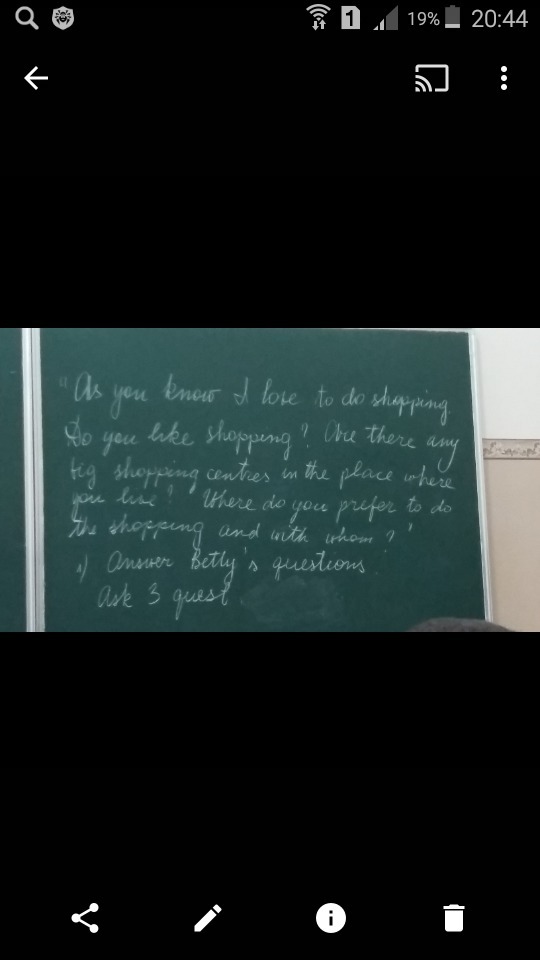 1
19%
20:44
"As you know I love to do shopping.
Do you like shopping? Are there any
big shopping centres in the place where
you live? Where do you prefer to do
the shopping and with whom?"
1) Answer Betty's questions.
Ask 3 quest.